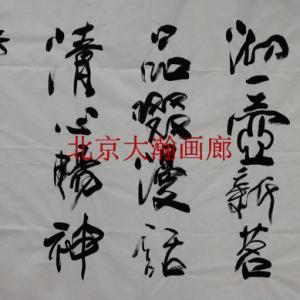 沏一壶新茗
品啜漫话
清心畅神
北京大瀚画廊